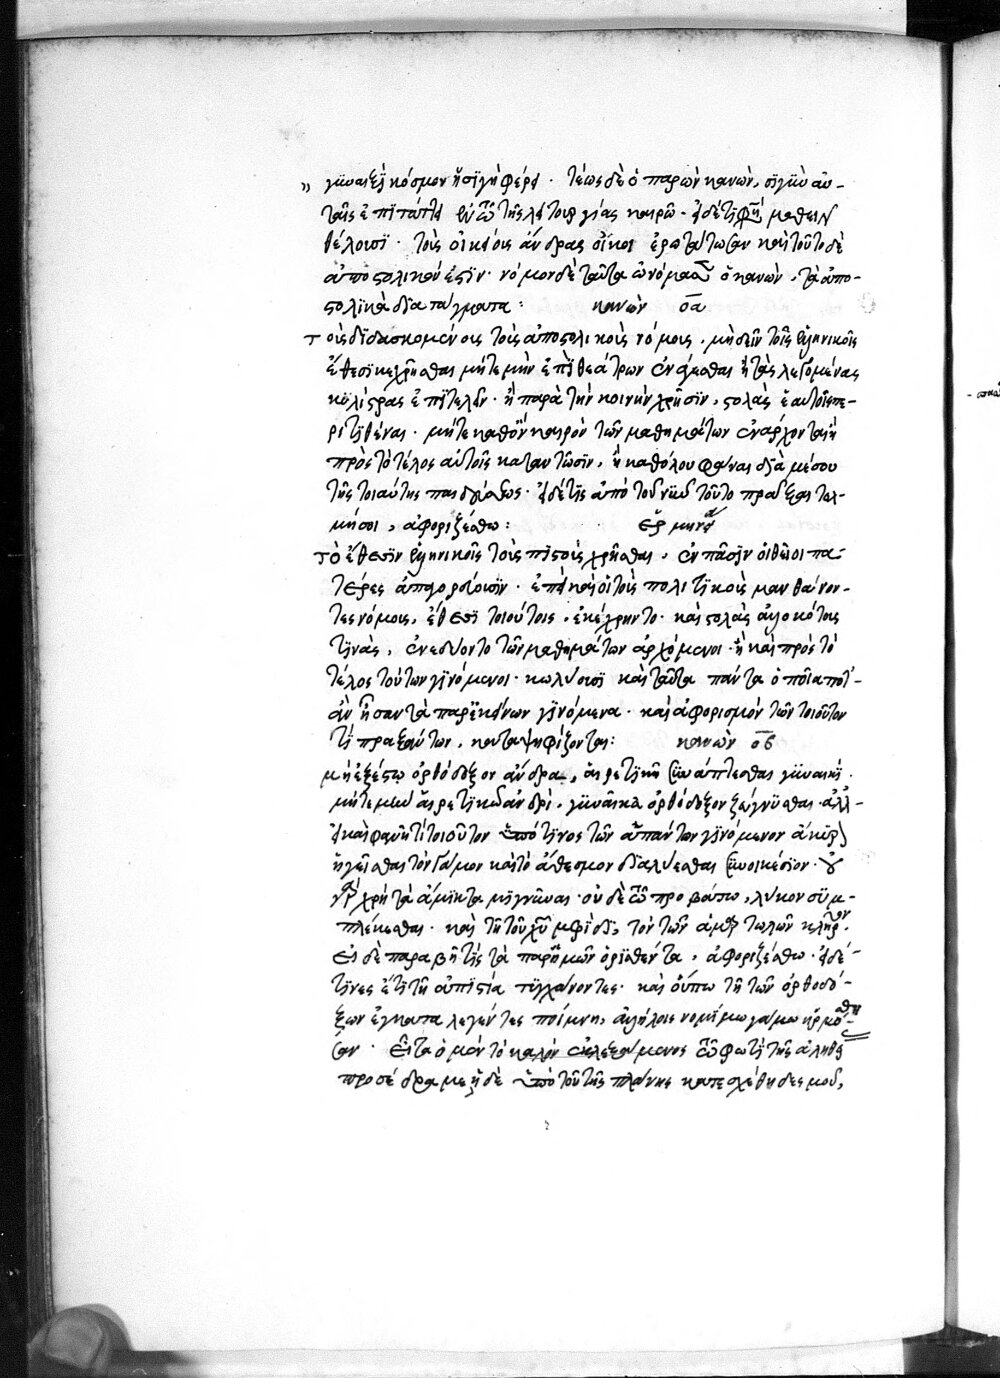 γυναιξὶ κόσμον ἡ σιγὴ φέρει · τέως δὲ ὁ παρὼν κανὼν, σιγὴν αὐ-
ταῖς ἐπιτάττει ἐν τῶ τῆς λειτουργίας καιρῶ · εἰ δέ τι φησὶ μαθεῖν
θέλοισι · τοὺς οἰκείους ἄνδρας οἴκοι ἐρωτάτωσαν καὶ τοῦτο δὲ
ἀποστολικόν ἐστιν · νόμον δὲ ταῦτα ὠνόμασεν ὁ κανὼν, τὰ ἀπο-
στολικὰ διατάγματα : κανὼν οα
Τοὺς διδασκομένους τοὺς ἀποστολικοὺς νόμους, μὴ δεῖν τοῖς ἑλληνικοῖς
ἔθεσι κεχρῆσθαι μήτε μὴν ἐπὶ θεάτρων ἀνάγεσθαι ἢ τὰς λεγομένας
κυλίστρας ἐπιτελεῖν · ἢ παρὰ τὴν κοινὴν χρῆσιν, στολὰς ἑαυτοῖς πε-
ριτιθέναι · μήτε καθ' ὃν καιρὸν τῶν μαθημάτων ἐνάρχονται ἢ
πρὸς τὸ τέλος αὐτοῖς καταντῶσιν, ἢ καθόλου φάναι διὰ μέσου
τῆς τοιαύτης παιδεύσεως · εἰ δέ τις ἀπὸ τοῦ νῦν τοῦτο πράξαι τολ-
μήσοι, ἀφοριζέσθω : ἑρμηνεία
Τὸ ἔθεσιν ἑλληνικοῖς τοὺς πιστοὺς χρῆσθαι, ἐν πᾶσιν οἱ θεῖοι πα-
τέρες ἀπαγορεύουσιν · ἐπεὶ καὶ οἱ τοὺς πολιτικοὺς μανθάνον-
τες νόμους, ἔθεσι τοιούτοις, ἐκέχρηντο · καὶ στολὰς ἀλλοκότους
τινὰς, ἐνεδύοντο τῶν μαθημάτων ἀρχόμενοι · ἢ καὶ πρὸς τὸ
τέλος τούτων γινόμενοι · κωλύουσι καὶ ταῦτα πάντα ὁποῖα ποτ'
ἂν ἦσαν τὰ παρ' ἐκείνων γινόμενα · καὶ ἀφορισμὸν τῶν τοιοῦτον
τι πραξάντων, καταψηφίζονται : κανὼν οβ
μὴ ἐξέστω ὀρθόδοξον ἄνδρα, αἱρετικῆ συνάπτεσθαι γυναικὶ ·
μήτε μὴν αἱρετικῶ ἀνδρὶ, γυναῖκα ὀρθόδοξον ζεύγνυσθαι · ἀλλ'
εἰ καὶ φανῆ τι τοιοῦτον ὑπό τινος τῶν ἁπάντων γινόμενον ἄκυρον
ἡγεῖσθαι τὸν γάμον καὶ τὸ ἄθεσμον διαλύεσθαι συνοικέσιον · οὐ
γὰρ χρὴ τὰ ἄμικτα μιγνύναι · οὐδὲ τῶ προβάτω, λύκον συμ-
πλέκεσθαι · καὶ τῆ τοῦ χ̅υ̅ μερίδι, τὸν τῶν ἁμαρτωλῶν κλῆρον ·
Εἰ δὲ παραβῆ τις τὰ παρ' ἡμῶν ὁρισθέντα, ἀφοριζέσθω · εἰ δέ
τινες ἔτι τῆ ἀπιστία τυγχάνοντες · καὶ οὔπω τῆ τῶν ὀρθοδό-
ξων ἐγκαταλεγέντες ποίμνη, ἀλλήλοις νομίμω γάμω ἡρμόσθη-
σαν · Εἶτα ὁ μὲν τὸ καλὸν ἐκλεξάμενος τῶ φωτὶ τῆς ἀληθείας
προσέδραμε ἡ δὲ ὑπὸ τοῦ τῆς πλάνης κατεσχέθη δεσμοῦ,